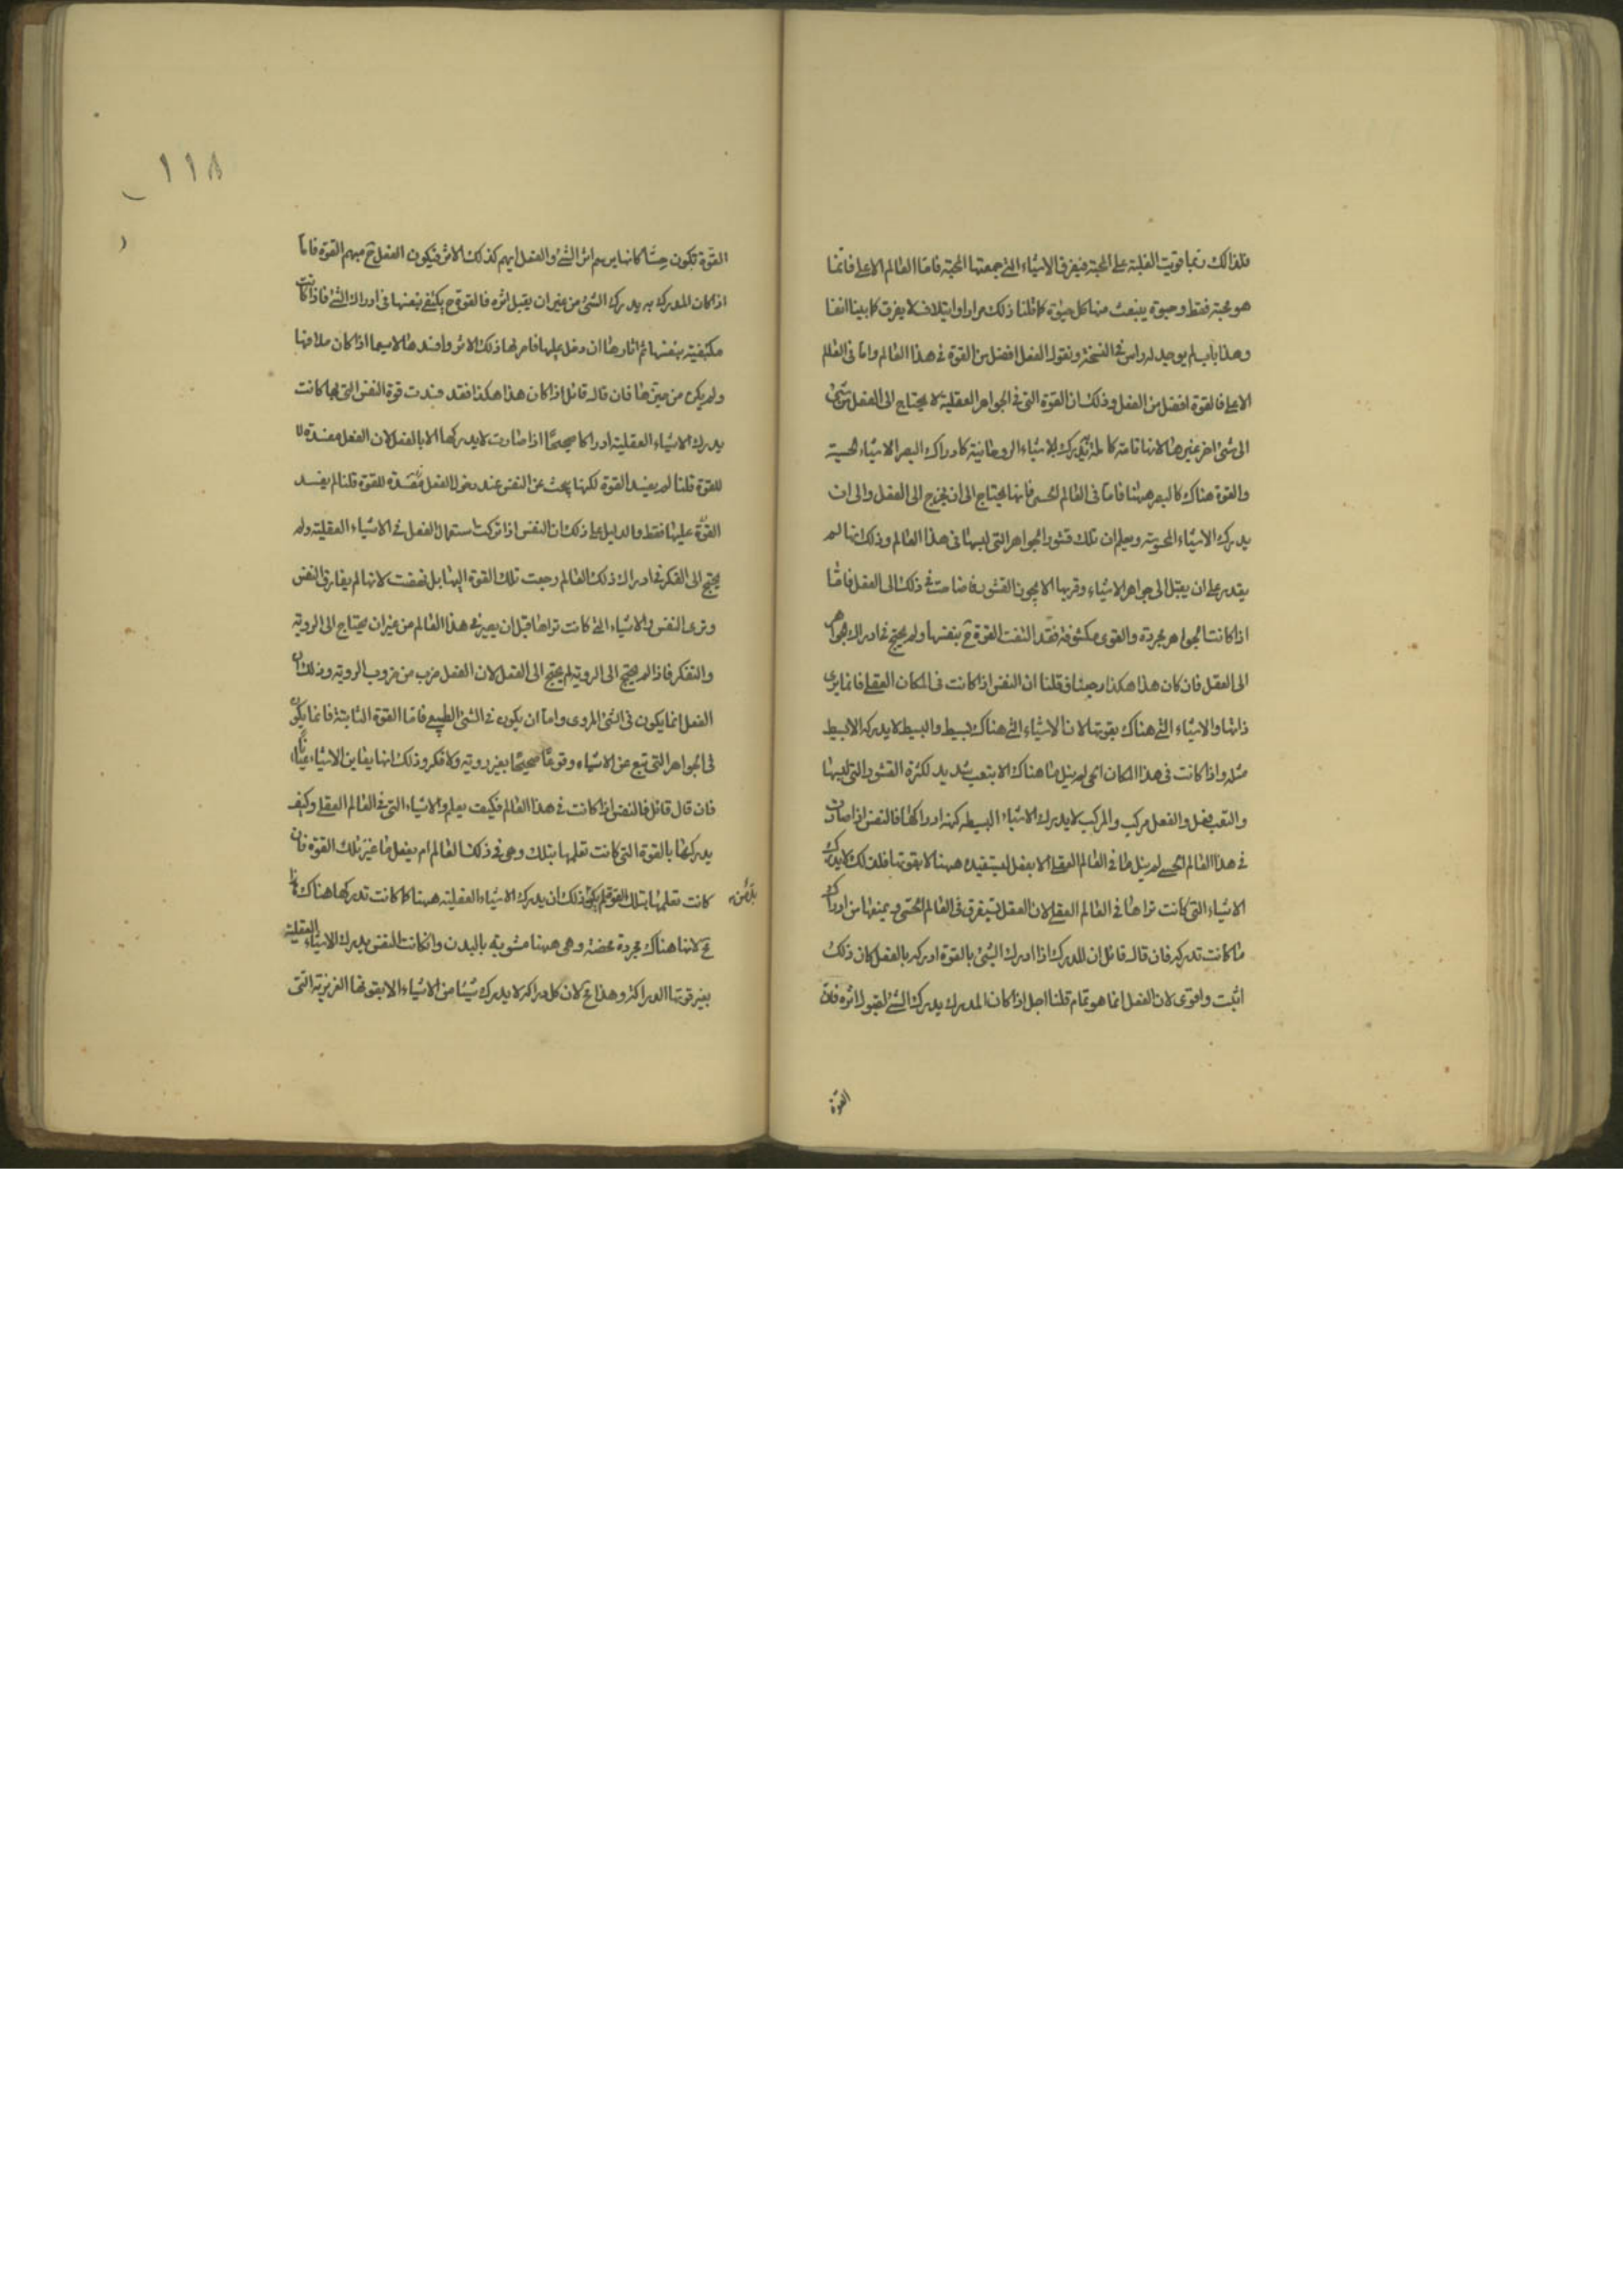 فلذلك ربما قويت الغلبة على المحبة فيفرق الاشياء التى جمعتها المحبة فاما العالم الاعلى فانما
هو محبة فقط وحيوة ينبعث منها كل حيوة كما قلنا ذلك مرارا وايتلاف لا يفرق كما بينا انفا
وهذا باب لم يوجد له راس فى النسخة ونقول الفعل افضل من القوة فى هذا العالم واما فى العالم
الاعلى فالقوة افضل من الفعل وذلك ان القوة التى فى الجواهر العقلية لا يحتاج الى الفعل من شئ
الى شئ اخر غيرها لانها تامة كاملة يدرك الاشياء الروحانية كادراك البصر الاشياء الحسية
والقوة هناك كالبصر ههنا فاما فى العالم الحسى فانها يحتاج الى ان يخرج الى الفعل والى ان
يدرك الاشياء المحسوسة ويعلم ان تلك قشور الجواهر التى لبسها فى هذا العالم وذلك انها لم
يقدر على ان يصل الى جواهر الاشياء وقربها الا بخرق القشور فاحتاجت فى ذلك الى الفعل فاما
اذا كانت الجواهر مجردة والقوى مكشوفة فقد اكتفت القوة ح بنفسها ولم يحتج فى ادراك الجواهر
الى الفعل فان كان هذا هكذا رجعنا فقلنا ان النفس اذا كانت فى المكان العقلى فانما يرى
ذاتها والاشياء التى هناك بقوتها لان الاشياء التى هناك بسيط والبسيط لا يدركه الا بسيط
مثله واذا كانت فى هذا المكان الحسى لم ينل ما هناك الا بتعب شديد لكثرة القشور التى لبسها
والتعب فعل والفعل مركب والمركب لا يدرك الاشياء البسيطه كنه ادراكها فالنفس اذا صارت
فى هذا العالم الحسى لم ينل ما فى العالم العقلى الا بفعل تستفيده ههنا لا بقوتها فلذلك لا يدرك
الاشياء التى كانت تراها فى العالم العقلى لان الفعل يستغرق فى العالم الحسى ويمنعها من ادراك
ما كانت تدركه فان قال قائل ان المدرك اذا ادرك الشئ بالقوة ادركه بالفعل كان ذلك
اثبت واقوى لان الفعل انما هو تمام قلنا اجل اذا كان المدرك يدرك الشئ لقبول اثره فان
القوة
١١٨
القوة تكون حسا كانها يرسم اثر الشئ والفعل ايهم كذلك الاثر فيكون الفعل ح مبهم القوة فاما
اذا كان المدرك به يدرك الشئ من غير ان يقبل اثره فالقوة ح يكتفى بنفسها فى ادراك الشئ فاذا كانت
مكتفية بنفسها ثم اثارها ان دخل عليها ذلك الاثر وافسدها لاسيما اذا كان ملاقيا
ولم يكن من حيزها فان قال قائل اذا كان هذا هكذا فقد فسدت قوة النفس التى بها كانت
يدرك الاشياء العقلية ادراكا صحيحا اذا صارت لا يدركها الا بالفعل لان الفعل مفسدة
للقوة قلنا لم يفسد القوة لكنها يحث عن النفس عند دخول الفعل مفسدة للقوة قلنا لم يفسد
القوة عليها فقط والدليل على ذلك ان النفس اذا تركت استعمال الفعل فى الاشياء العقلية ولم
يحتج الى الفكر فى ادراك ذلك العالم رجعت تلك القوة اليها بل نهضت لانها لم يفارق النفس
وترى النفس الاشياء التى كانت تراها قبل ان يصير فى هذا العالم من غير ان يحتاج الى الروية
والتفكر فاذا لم يحتج الى الروية لم يحتج الى الفعل لان الفعل ضرب من ضروب الروية وذلك ان
الفعل انما يكون فى الشئ المروى واما ان يكون فى الشئ الطبيعى فاما القوة الثابتة فانما يكون
فى الجواهر التى تقع عن الاشياء وقوعا صحيحا بغير روية ولا فكر وذلك انها يعاين الاشياء عيانا
فان قال قائل فالنفس اذا كانت فى هذا العالم فكيف يعلم الاشياء التى فى العالم العقلى وكيف
يدركها بالقوة التى كانت تعلمها بتلك وهى فى ذلك العالم ام بفعل ما غير تلك القوة فان
كانت تعلمها بتلك القوة لم يكن ذلك ان يدرك الاشياء العقلية ههنا كما كانت تدركها هناك
مح لانها هناك مجردة محضة وهى ههنا مشوبة بالبدن وان كانت النفس يدرك الاشياء العقلية
بغير قوتها الدراكة وهذا مح لان كل دراكة لا يدرك شيئا من الاشياء الا بقوتها الغريزية التى